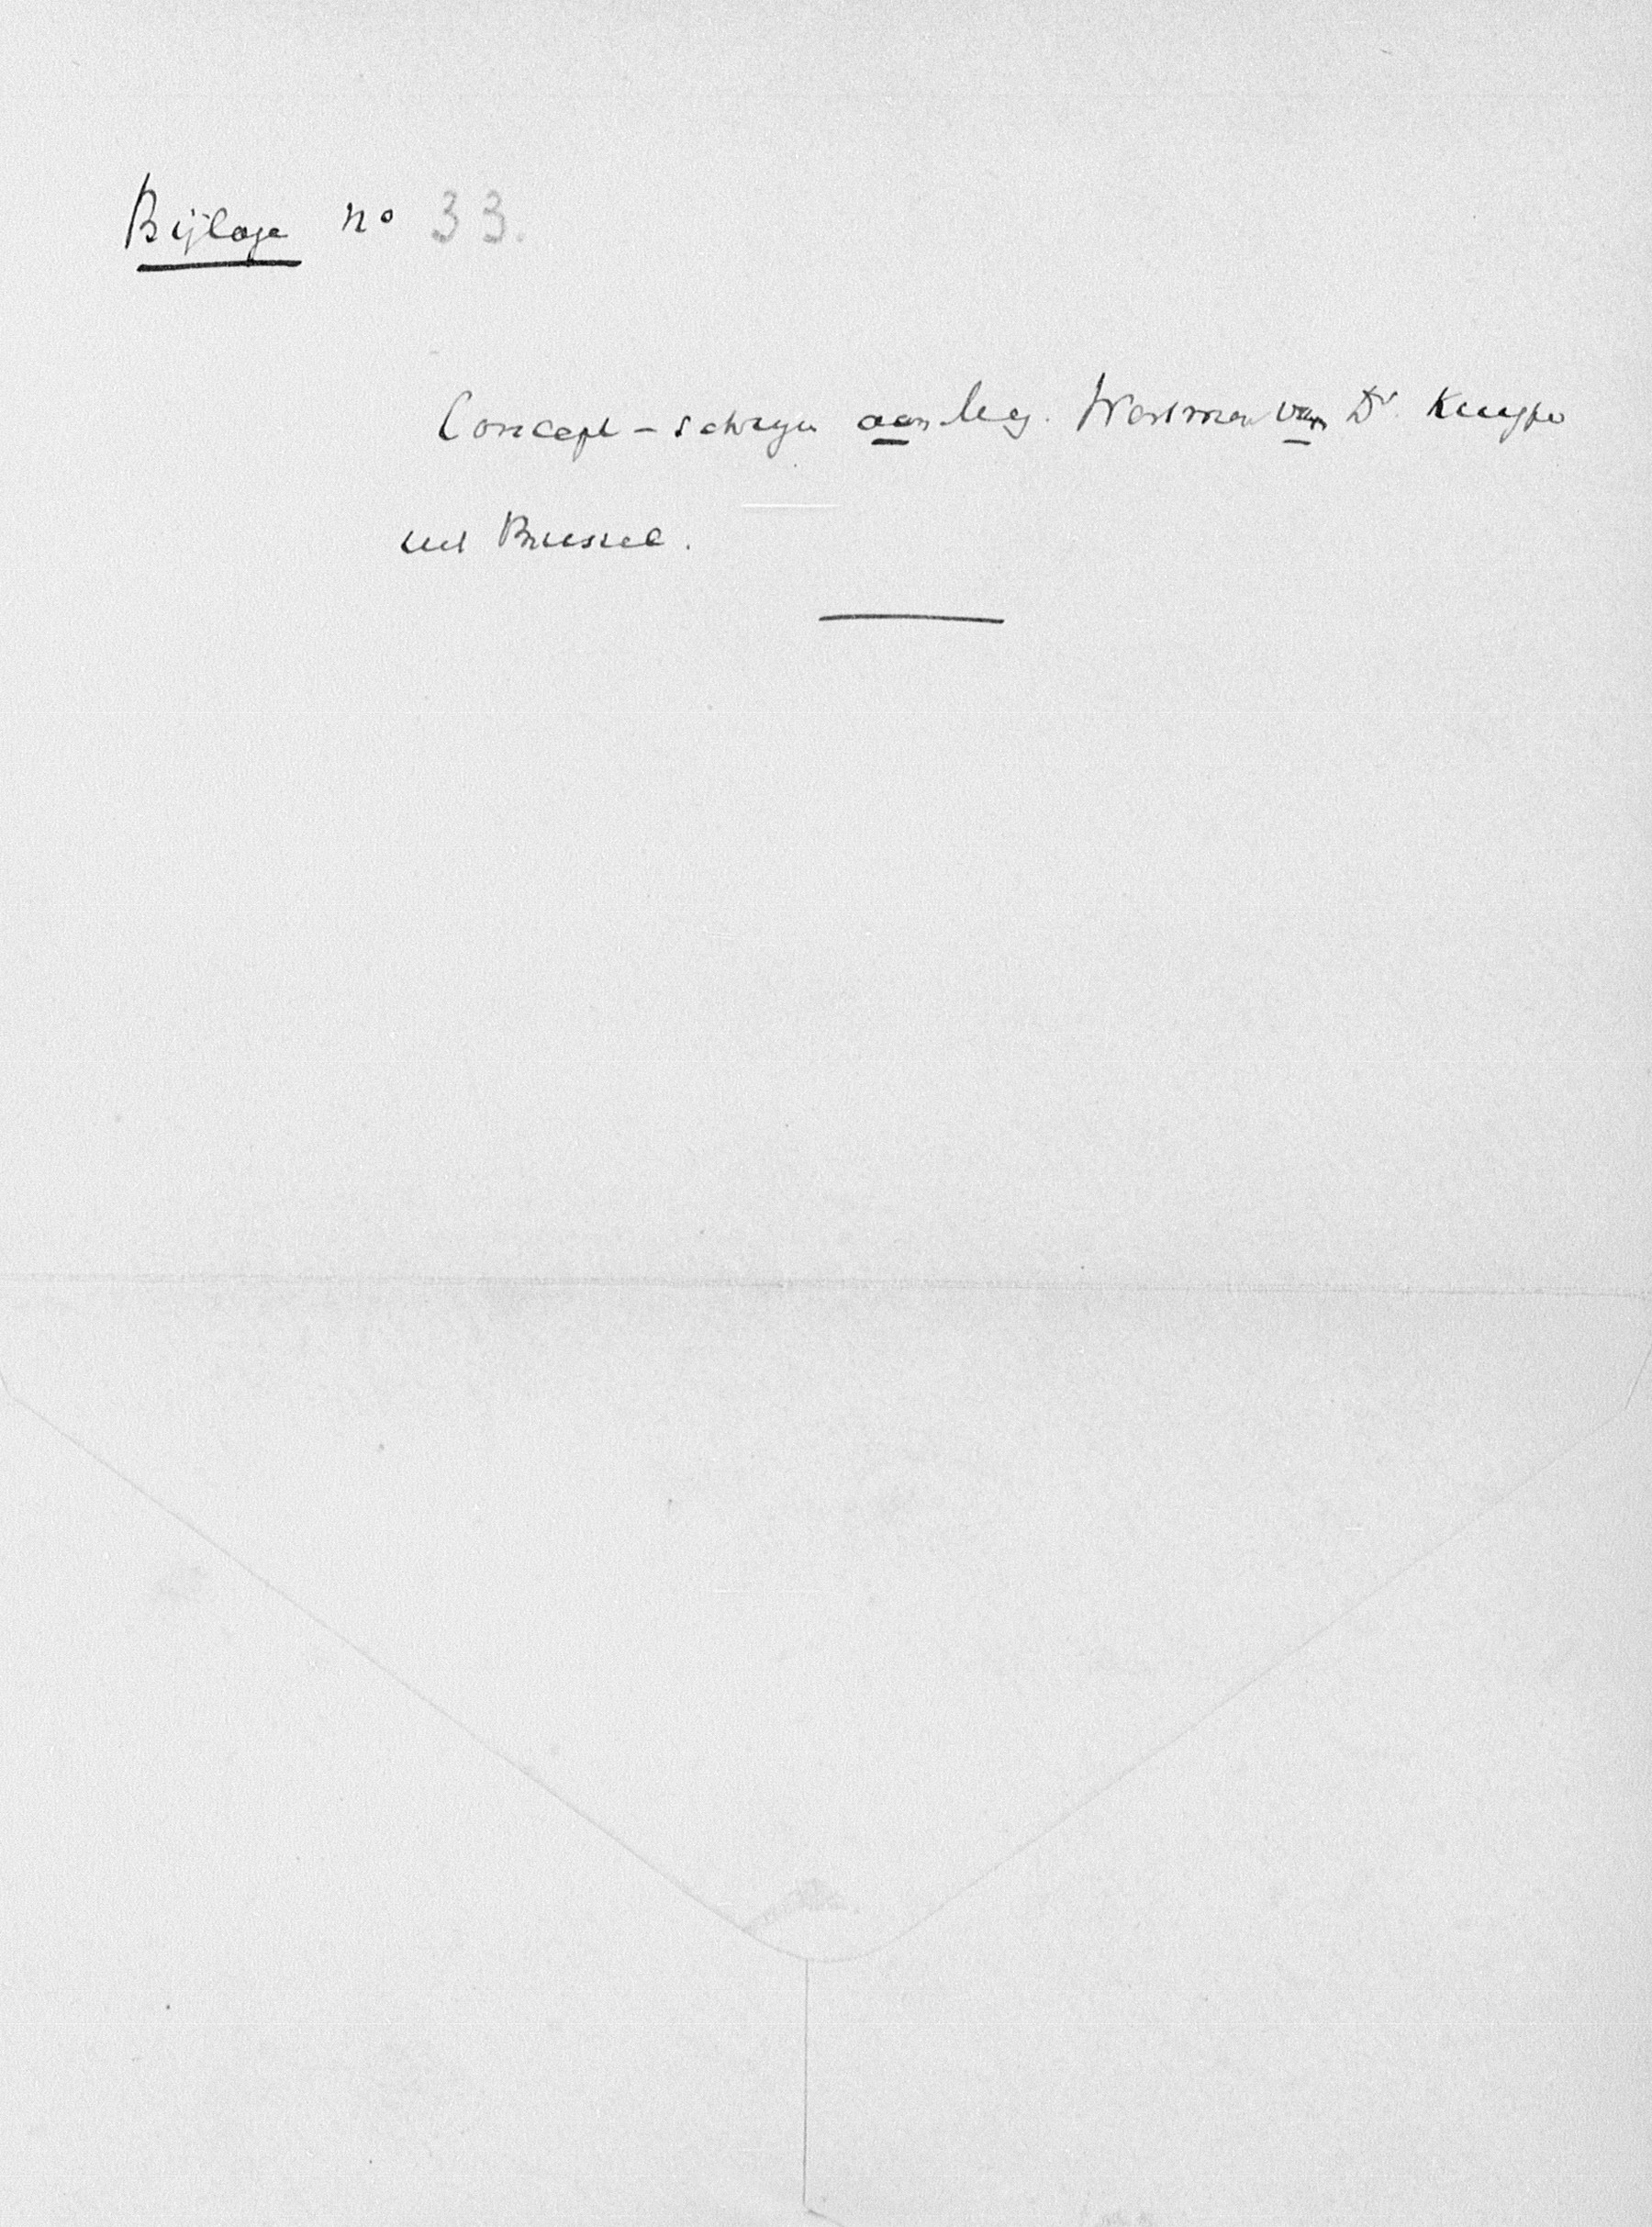 Bijlage no 33.
Concept-schrijven aan Mej. Westmeijer van Dr. Kuyper
uit Brussel.